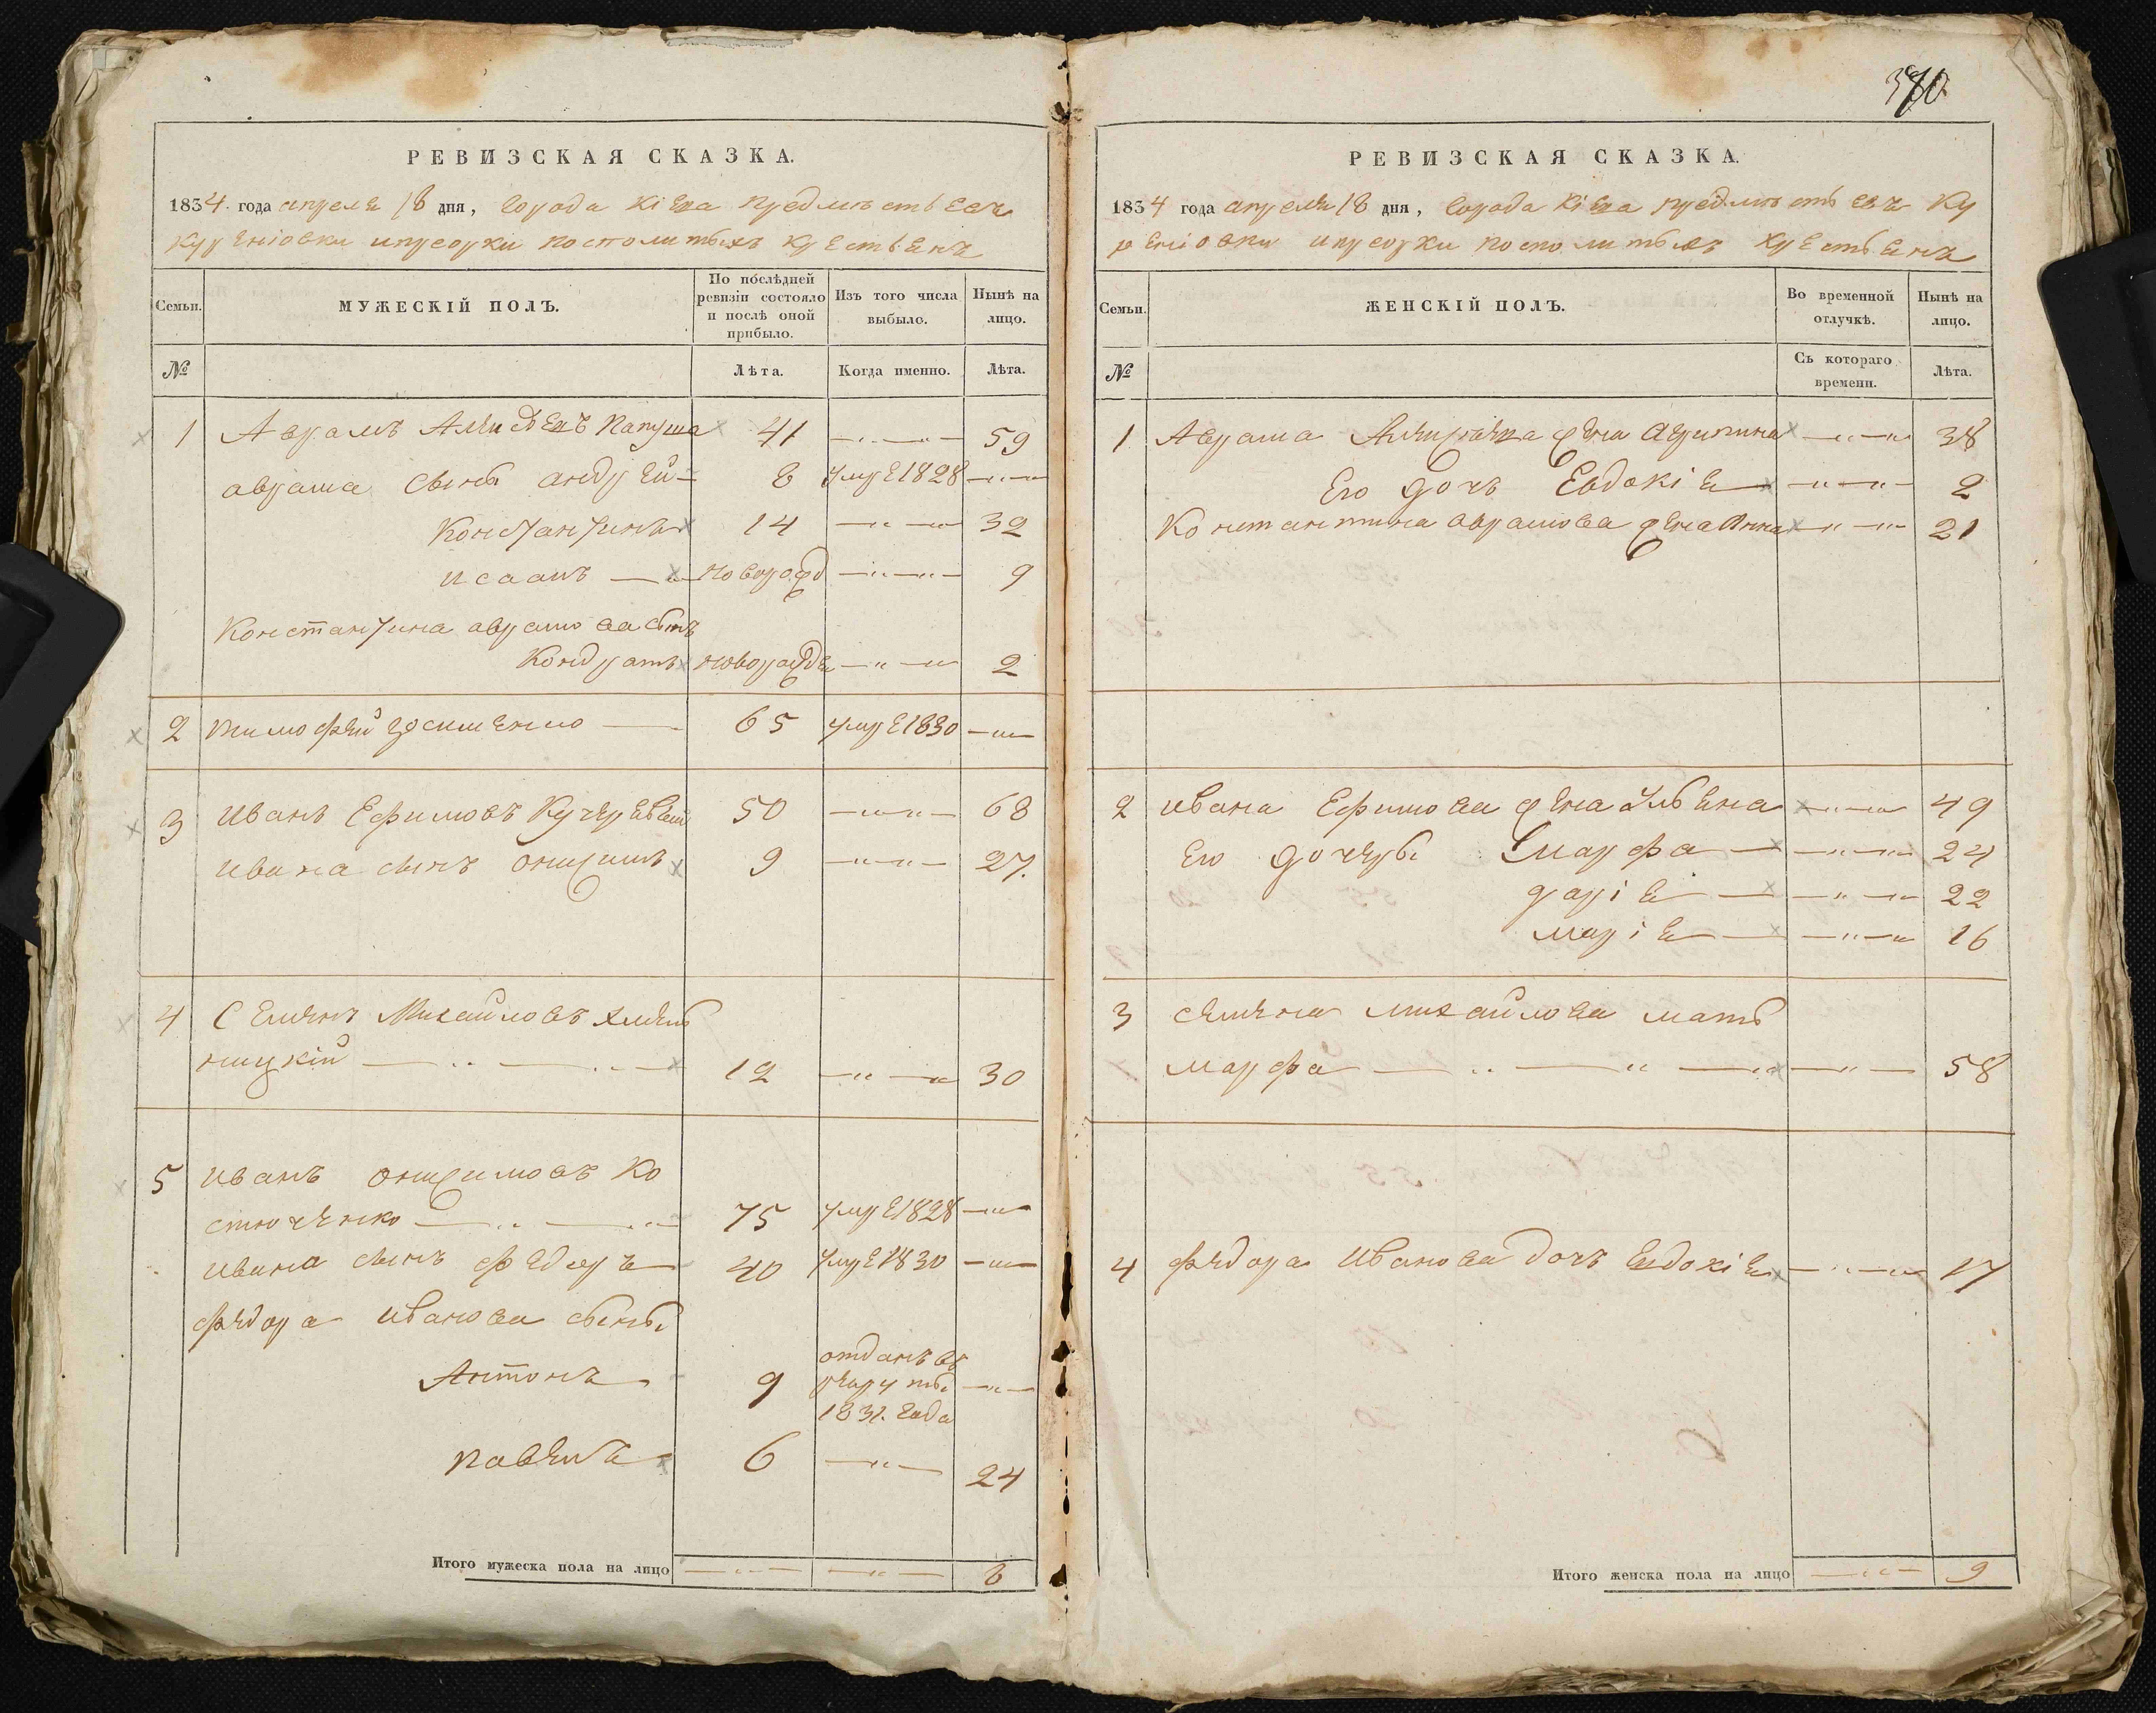 РЕВИЗСКАЯ СКАЗКА.
1834 года апреля 18 дня, города Кіева предместьевъ
Куреніовки и присорки посполитыхъ крестьянъ
Семьи. МУЖЕСКІЙ ПОЛЪ. По послѣдней ревизіи состояло и послѣ оной прибыло. Изъ того числа выбыло. Нынѣ на лицо.
№ Лѣта. Когда именно. Лѣта.
1 Аврамъ Папуша 41 59
аврама сыны андрей 8 умре 1828
Константинъ 14 32
исаакъ новорожд 9
Константина аврамова сынъ
Кондратъ новорожде 2
2 тимофей 65 умре 1830
3 иванъ Ефимовъ Кучеревый 50 68
ивана сынъ онисимъ 9 27.
4 Семенъ Михайловъ хмель
ницкій 12 30
5 иванъ онисимовъ Ко
стюченко 75 умре 1828
ивана сынъ федоръ 40 умре 1830
федора иванова сыны
Антонъ 9 отданъ въ рекруты 183 года
павелъ 6 24
Итого мужеска пола на лицо 8
370
РЕВИЗСКАЯ СКАЗКА.
1834 года апреля 18 дня, города Кіева предместьевъ Ку
реніовки и присорки посполитыхъ крестьянъ
Семьи. ЖЕНСКІЙ ПОЛЪ. Во временной отлучкѣ. Нынѣ на лицо.
№ Съ котораго времени. Лѣта.
1 Аврама жена Агрипина 38
Его дочь Евдокія 2
Константина аврамова жена Анна 21
2 ивана Ефимова жена Ульяна 49
Его дочеры Марфа 24
дарія 22
марія 16
3 семена михайлова мать
марфа 58
4 федора иванова дочь Евдокія 17
Итого женска пола на лицо 9